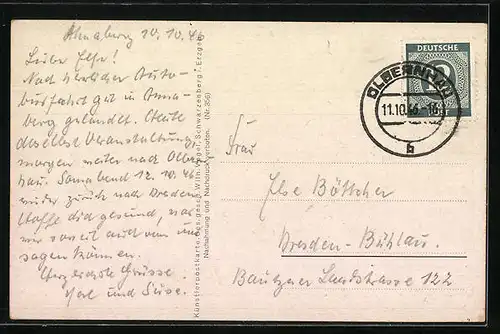 Annaberg 10.10.46
Liebe Else!
Nach herrlicher Auto-
busfahrt gut in Anna-
berg gelandet. Heute
daselbst Veranstaltung,
morgen weiter nach Olbern-
hau. Sonnabend 12.10.46
wieder zurück nach Dresden.
Hoffe dich gesund, was
wir soweit auch von uns
sagen können.
Herzlichste Grüsse
und Suse.
Künstlerpostkarte des gesch. Wilh. Vogel, Schwarzenberg i. Erzgeb.
Nachahmung und Nachdruck verboten. (Nr. 356)
DEUTSCHE
12
OLBERNHAU
11.10.46-16
b
Frau
Else Böttcher
Dresden-Bühlau.
Bautzner Landstrasse 122